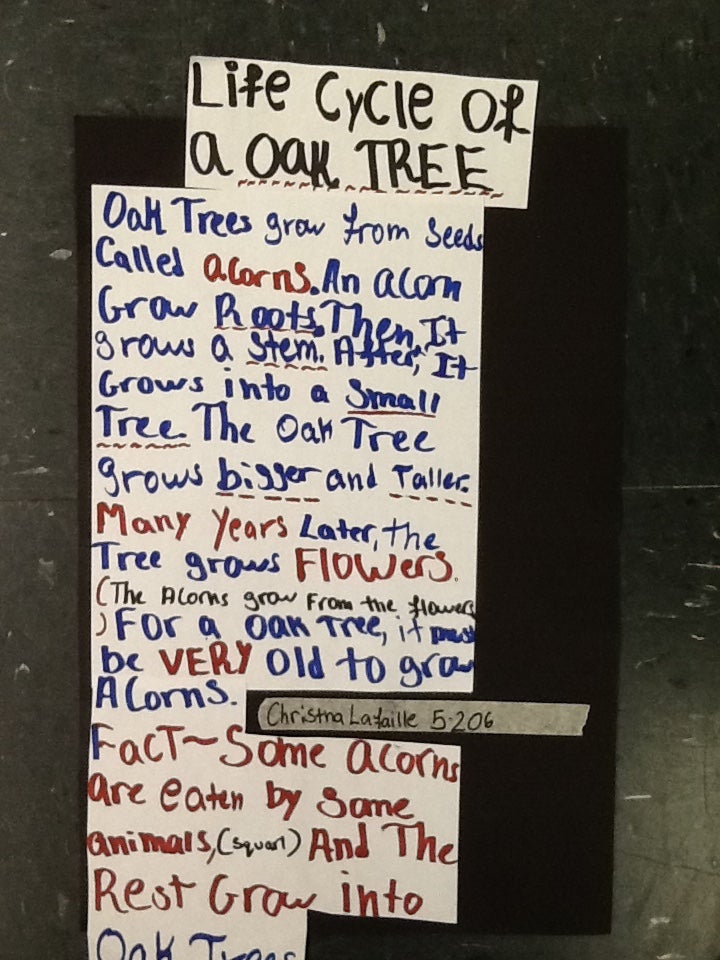 Life Cycle Of
a Oak TREE
Oak Trees grow from Seeds
Called acorns. An acorn
Grow Roots. Then, It
grows a Stem. After, It
Grows into a Small
Tree. The Oak Tree
grows bigger and Taller.
Many Years Later, the
Tree grows FLOWERS.
(The Acorns grow From the flowers
) For a Oak Tree, it must
be VERY Old to grow
Acorns.
Christna Lafaille 5-206
FacT~Some acorns
are eaten by some
animals, (squarl) And The
Rest Grow into
Oak Trees